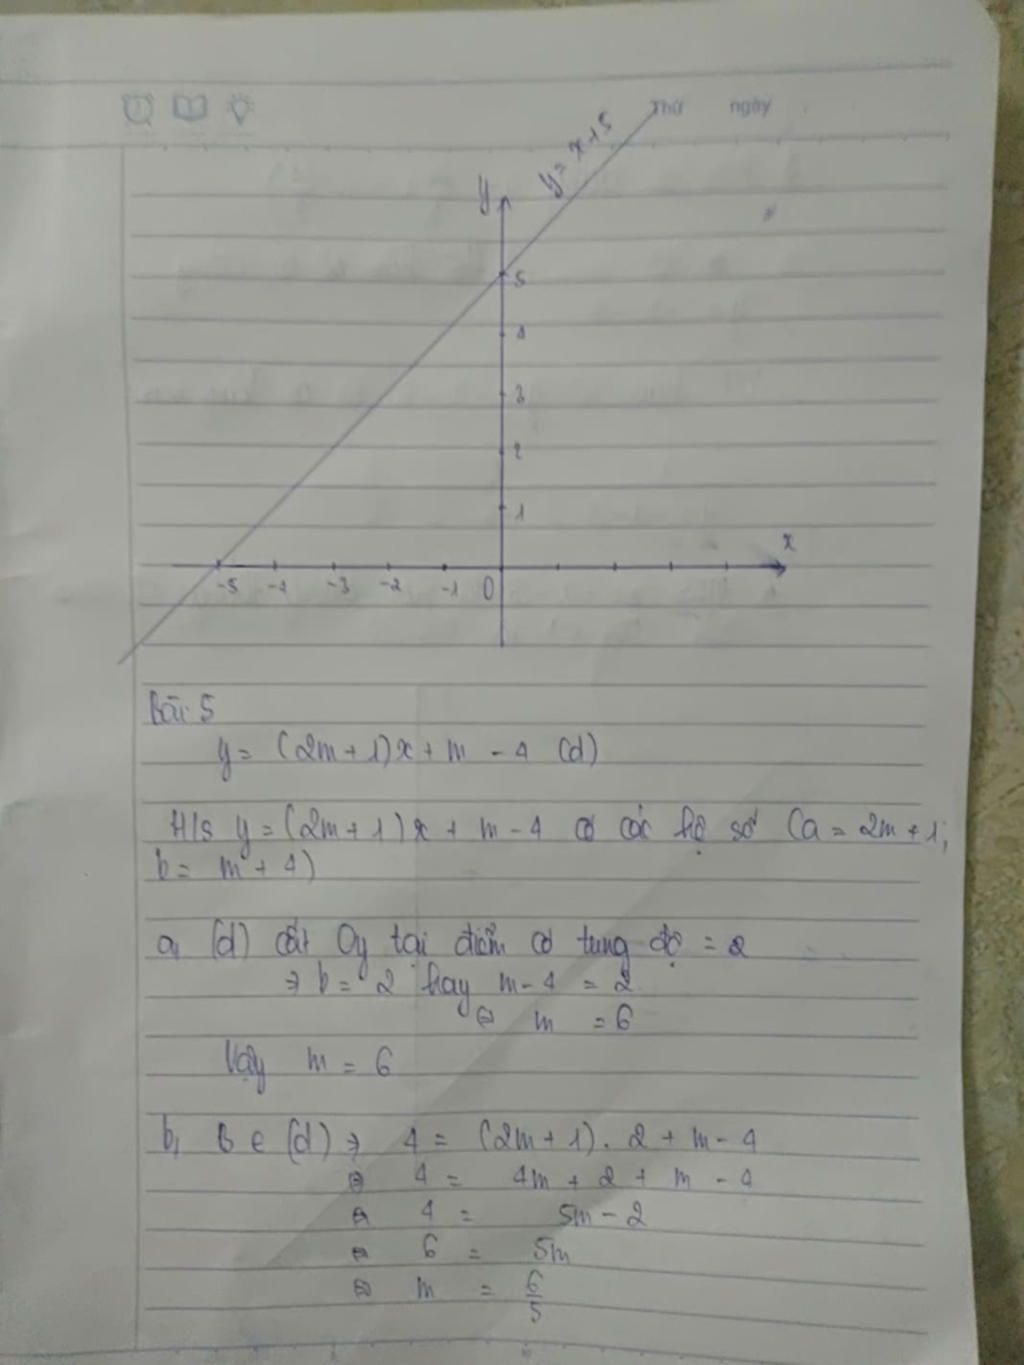 Thứ ngày
y = x + 5
y
5
4
3
2
1
x
-5 -4 -3 -2 -1 0
Bài 5
y = (2m + 1)x + m - 4 (d)
H/s y = (2m + 1)x + m - 4 có các hệ số (a = 2m + 1;
b = m + 4)
a, (d) cắt Oy tại điểm có tung độ = 2
⇒ b = 2 hay m - 4 = 2
⇔ m = 6
Vậy m = 6
b, B ∈ (d) ⇒ 4 = (2m + 1). 2 + m - 4
⇔ 4 = 4m + 2 + m - 4
⇔ 4 = 5m - 2
⇔ 6 = 5m
⇔ m = 6/5